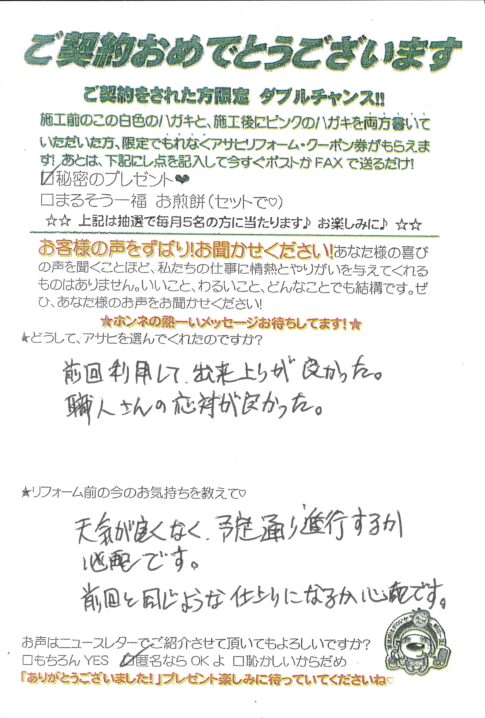 ご契約おめでとうございます
ご契約をされた方限定 ダブルチャンス!!
施工前のこの白色のハガキと、施工後にピンクのハガキを両方書いて
いただいた方、限定でもれなくアサヒリフォーム・クーポン券がもらえま
す!あとは、下記にレ点を記入して今すぐポストか FAX で送るだけ!
☑秘密のプレゼント❤
□まるそう一福 お煎餅(セットで♡)
☆☆ 上記は抽選で毎月5名の方に当たります♪ お楽しみに♪ ☆☆
お客様の声をずばり!お聞かせください!あなた様の喜び
の声を聞くことほど、私たちの仕事に情熱とやりがいを与えてくれる
ものはありません。いいこと、わるいこと、どんなことでも結構です。ぜ
ひ、あなた様のお声をお聞かせください!
★ホンネの熱ーいメッセージお待ちしてます!★
★どうして、アサヒを選んでくれたのですか?
前回利用して、出来上りが良かった。
職人さんの応対が良かった。
★リフォーム前の今のお気持ちを教えて♡
天気が良くなく、予定通り進行するか
心配です。
前回と同じような仕上りになるか心配です。
お声はニュースレターでご紹介させて頂いてもよろしいですか?
□もちろん YES ☑匿名なら OK よ □恥かしいからだめ
「ありがとうございました!」プレゼント楽しみに待っていてくださいね♡